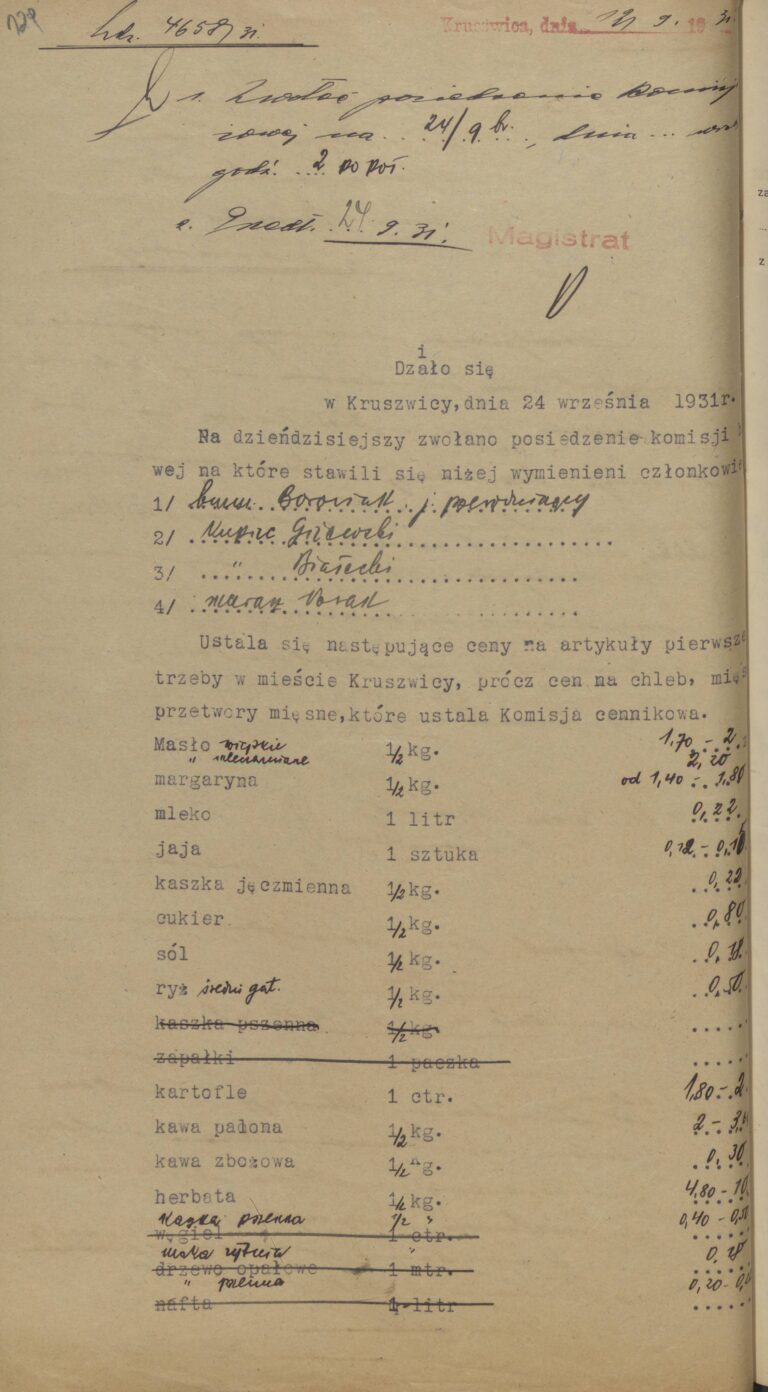 129
Ldz. 4658/31.
Kruszwica, dnia 19/9. 1931
1. Zwołać posiedzenie
na 24/9 br., dnia
godz. 2 po poł.
2. Przedł. 24.9.31.
Magistrat
i
Dzało się
w Kruszwicy,dnia 24 września 1931r.
Na dzieńdzisiejszy zwołano posiedzenie komisji
wej na które stawili się niżej wymienieni członkowie
1/ Borowiak j. przewodniczący
2/ Kupiec
3/ " Białecki
4/
Ustala się następujące ceny na artykuły pierwsze
trzeby w mieście Kruszwicy, prócz cen na chleb, mięs
przetwory mięsne,które ustala Komisja cennikowa.
Masło wiejskie 1/2 kg. 1,70 - 2.
" mleczarniane 2,20
margaryna 1/2 kg. od 1,40 - 1.80
mleko 1 litr 0,22
jaja 1 sztuka 0,12 - 0,15
kaszka jęczmienna 1/2 kg. 0,22
cukier 1/2 kg. 0,80
sól 1/2 kg. 0,18
ryż średni gat. 1/2 kg. 0,50
kaszka pszenna 1/2 kg.
zapałki 1 paczka
kartofle 1 ctr. 1,80 - 2
kawa palona 1/2 kg. 2 - 3,
kawa zbożowa 1/2 kg. 0,30
herbata 1/2 kg. 4,80 - 10
Kaszka pszenna 1/2 " 0,40 - 0,50
węgiel 1 ctr.
mąka żytnia " 0,18
drzewo opałowe 1 mtr.
" pszenna 0,20 -
nafta 1 litr